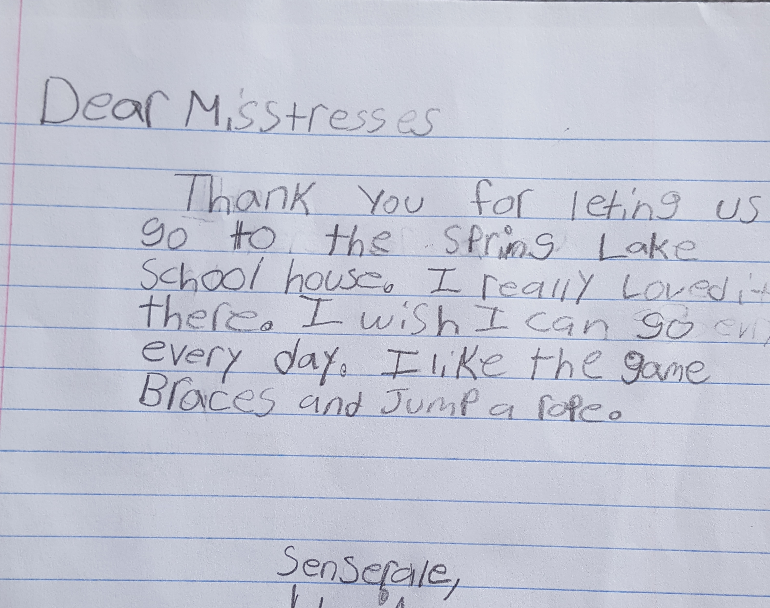 Dear Misstresses
Thank You for leting us
go to the Spring Lake
School house. I really Loved it
there. I wish I can go
every day. I like the game
Braces and Jump a rope.
Senserale,